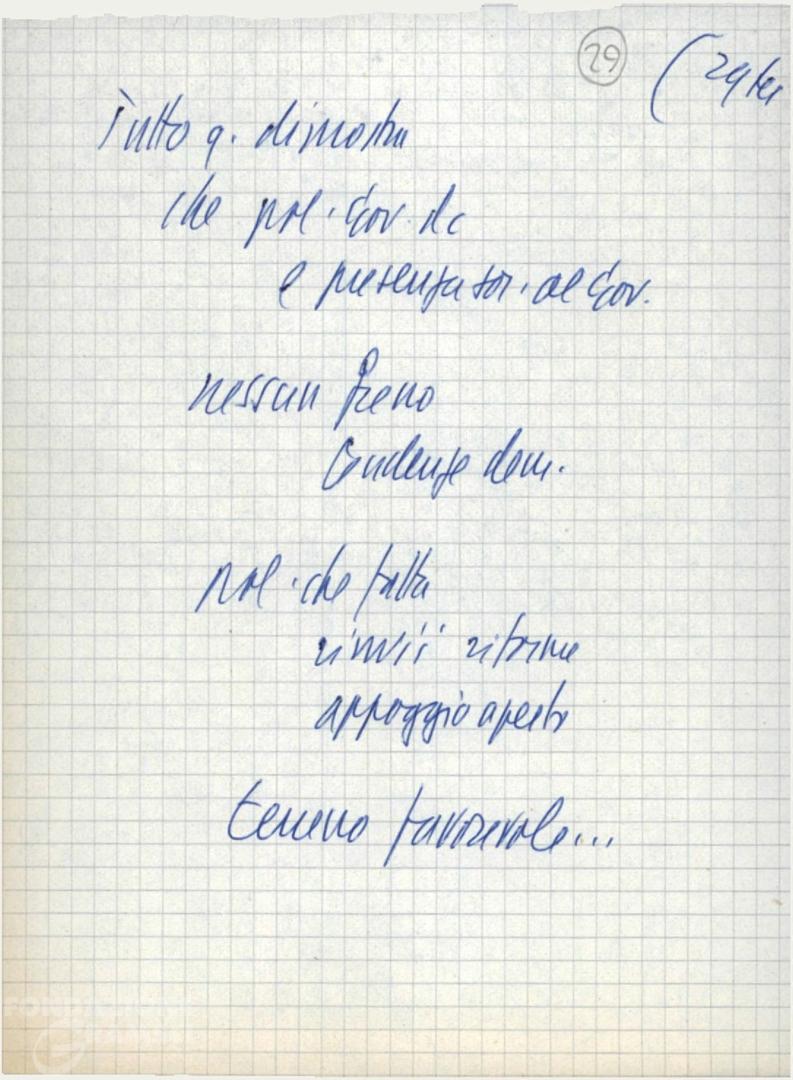 29 (29 ter
Tutto q. dimostra
che pol. Gov. dc
e presenza soc. al Gov.
nessun freno
tendenze dem.
pol. che fatta
rinvii riforme
appoggio aperto
terreno favorevole...
FONDAZIONE
GRAMSCI